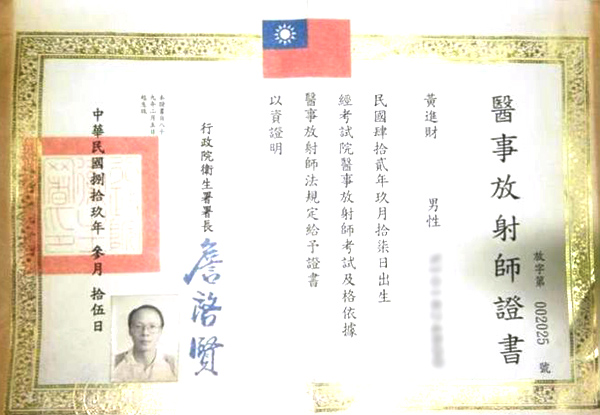 放字第 002025 號
醫事放射師證書
黃進財 男性
民國肆拾貳年玖月拾柒日出生
經考試院醫事放射師考試及格依據
醫事放射師法規定給予證書
以資證明
行政院衛生署署長 詹啓賢
本證書自八十
九年二月五日
起生效
中華民國捌拾玖年 參月 拾伍日